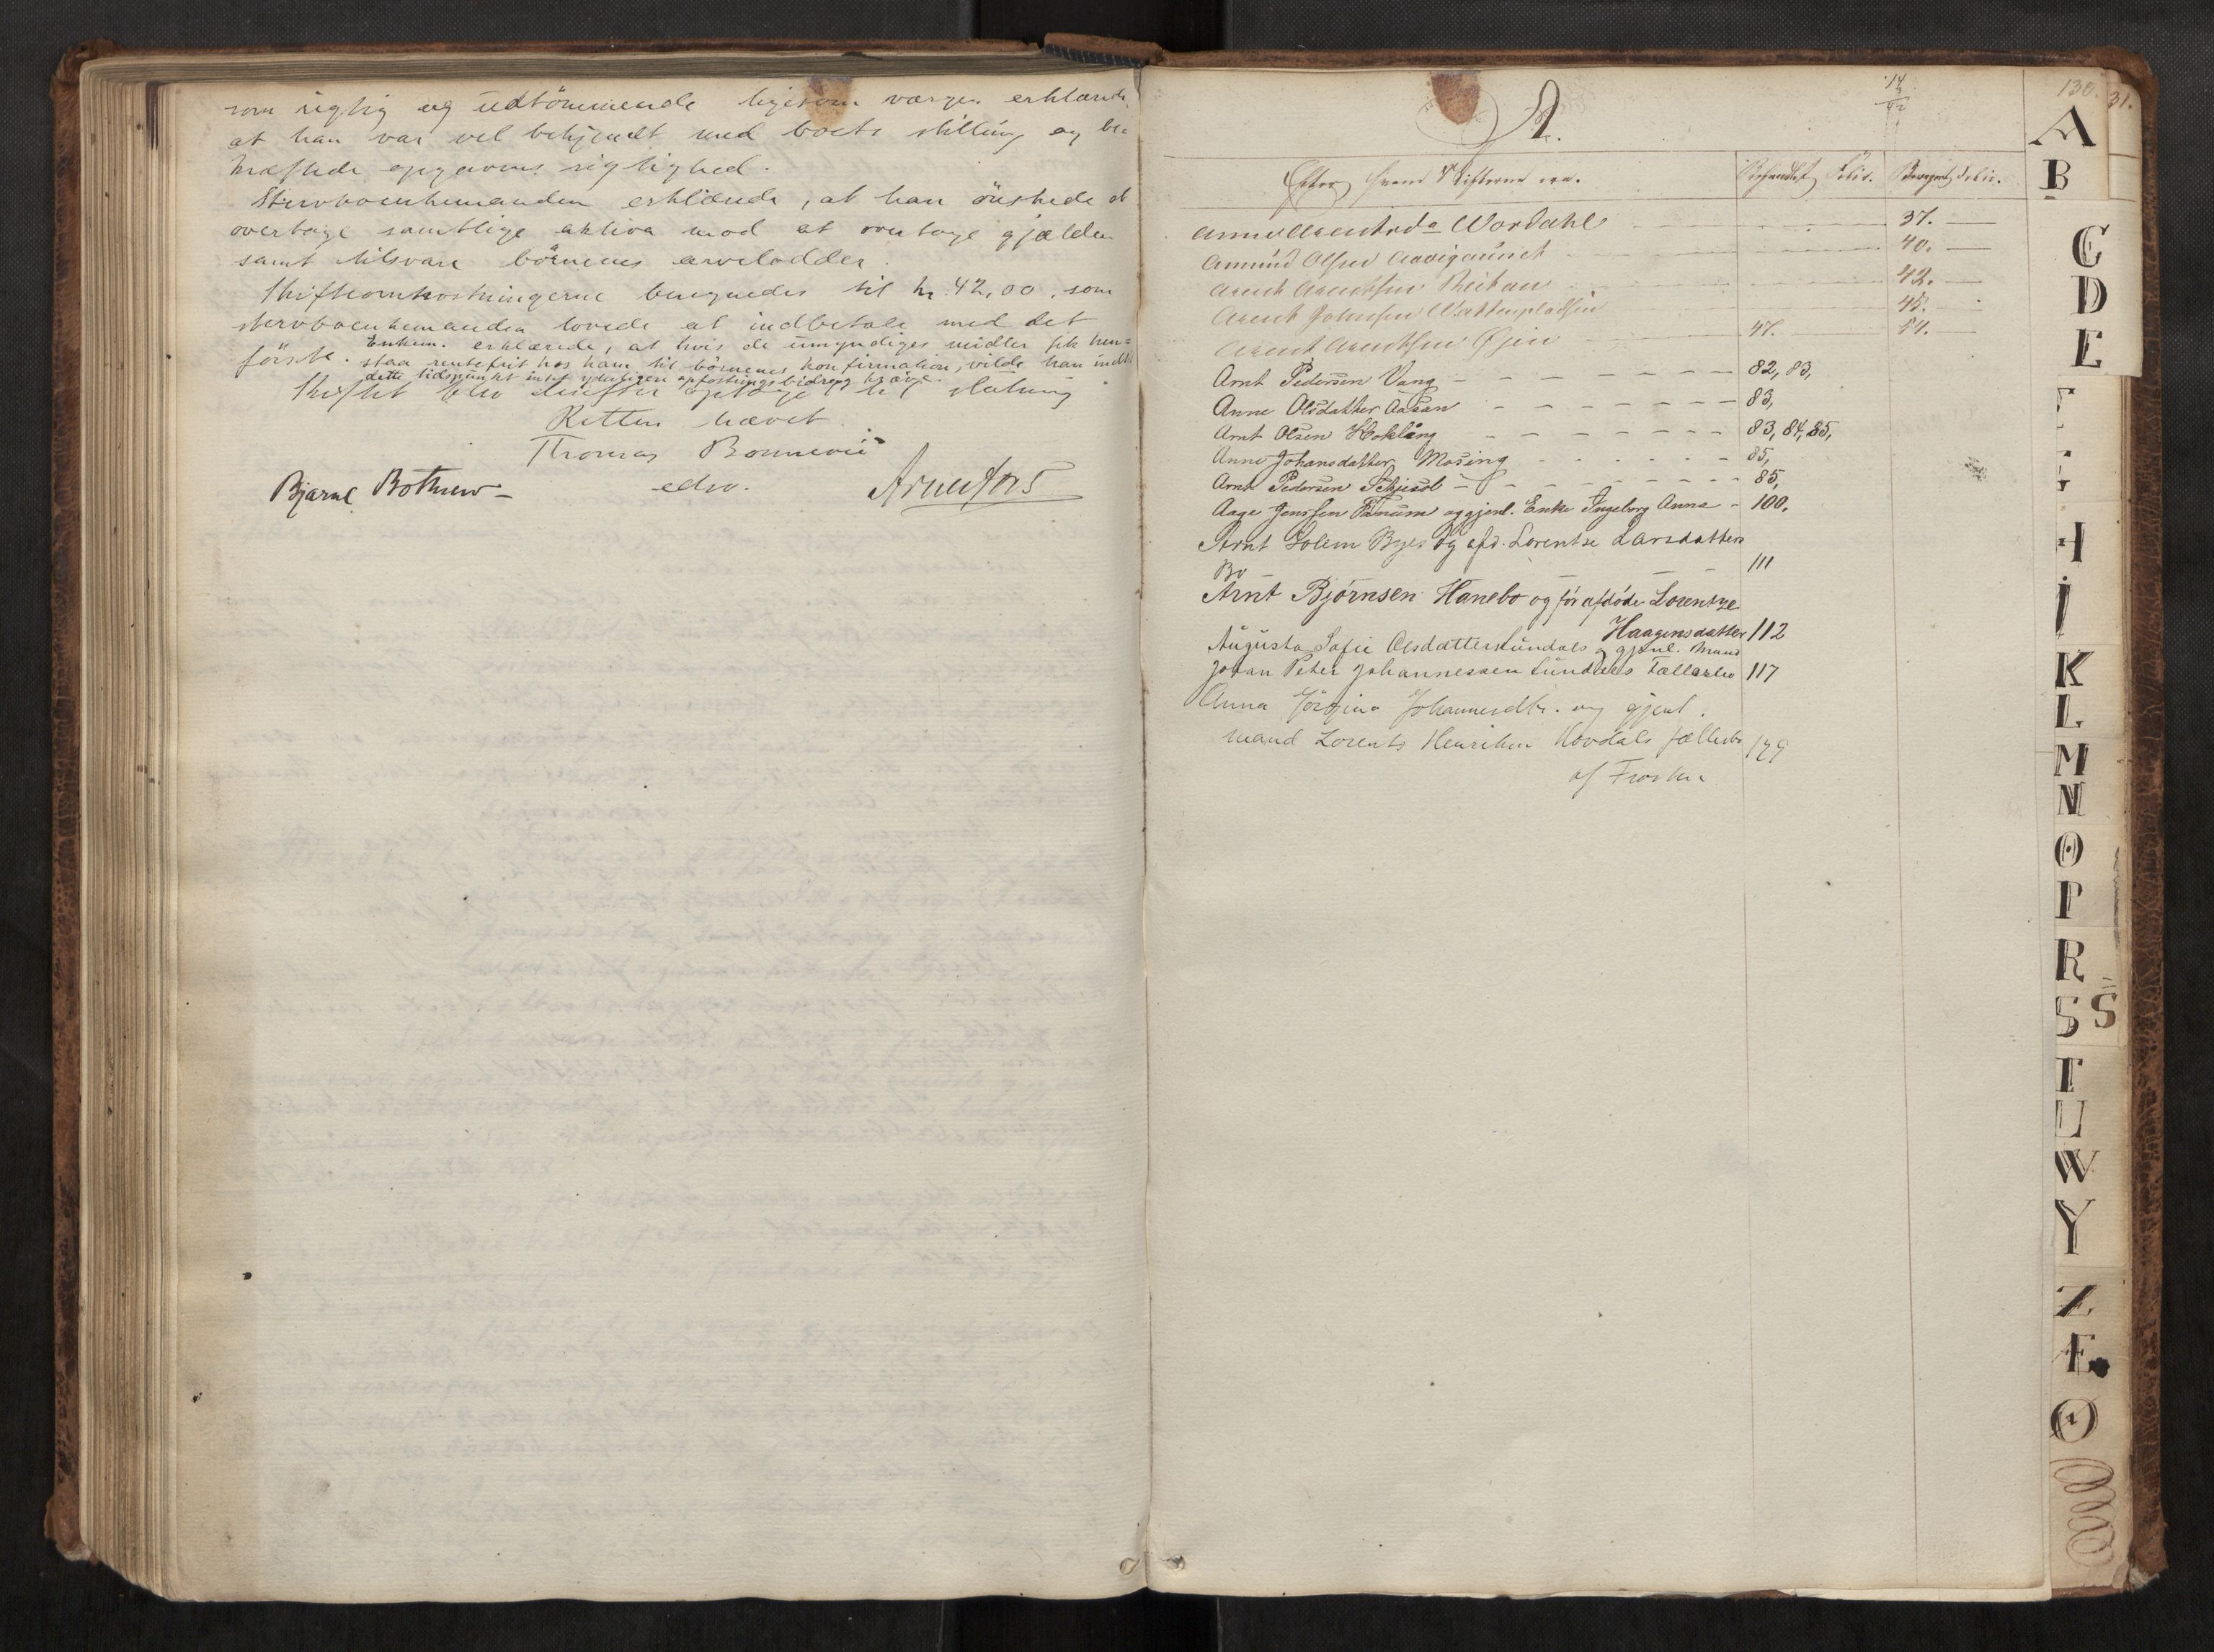 som rigtig og udtömmende ligesom værgen erklærede
at han var vel bekjendt med boets stilling og be-
kræftede opgavens rigtighed.
Stervboenkemanden erklærede, at han önskede at
overtage samtlige aktiva mod at overtage gjælden
samt tilsvare börnenes arvelodder.
Skifteomkostningerne beregnedes til kr. 42,00, som
stervboenkemanden lovede at indbetale med det
förste. Enkem. erklærede, at hvis de umyndiges midler fik hen-
staa rentefrit hos ham til börnenes konfirmation, vilde han indtil
dette tidspunkt intet yderligere opfostringsbidrag kræve.
Skiftet blev derefter optaget til slutning
Retten hævet
Thomas Bonnevie
edv.
Bjarne Bothner
A.
130.
31.
Efter hvem Skifterne ere.
Behandlet Folio.
Beregnet Folio.
Anne Arentsda Wordahl 37.
Amund Olsen 40.
Arent Arentsen 42.
Arent Johnsen 45.
Arent Arentsen Øjen 47. 54.
Arnt Pedersen Vang 82, 83,
Anne Olsdatter Aasan 83,
Arnt Olsen Hokling 83, 84, 85,
Anne Johansdatter Mosing 85,
Arnt Pedersen 85,
Aage Jenssen Fanum og gjenl. Enke Ingeborg Anna 100.
Arnt Solem Byes og afd. Lorentse Larsdatters
Bo 111
Arnt Björnsen Hanebo og för afdöde Lorentze
Haagensdatter 112
Augusta Sofie Olsdatter Lundals og gjenl. Mand
Johan Peter Johannessen Lundals Fællesbo 117
Anna Jörgine Johannesdtr. og gjenl.
mand Lorents Henriksen Hovdals fællesbo 129
af Frosten
A
B
C
D
E
H
I
K
L
M
N
O
P
R
S S
T
U
W
Y
Z
Æ
Ø